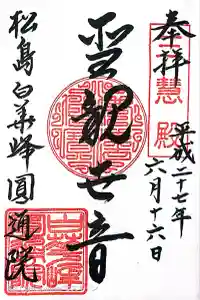 奉拝
三慧殿
平成二十七年
六月十六日
聖観世音
松島白華峰圓通院